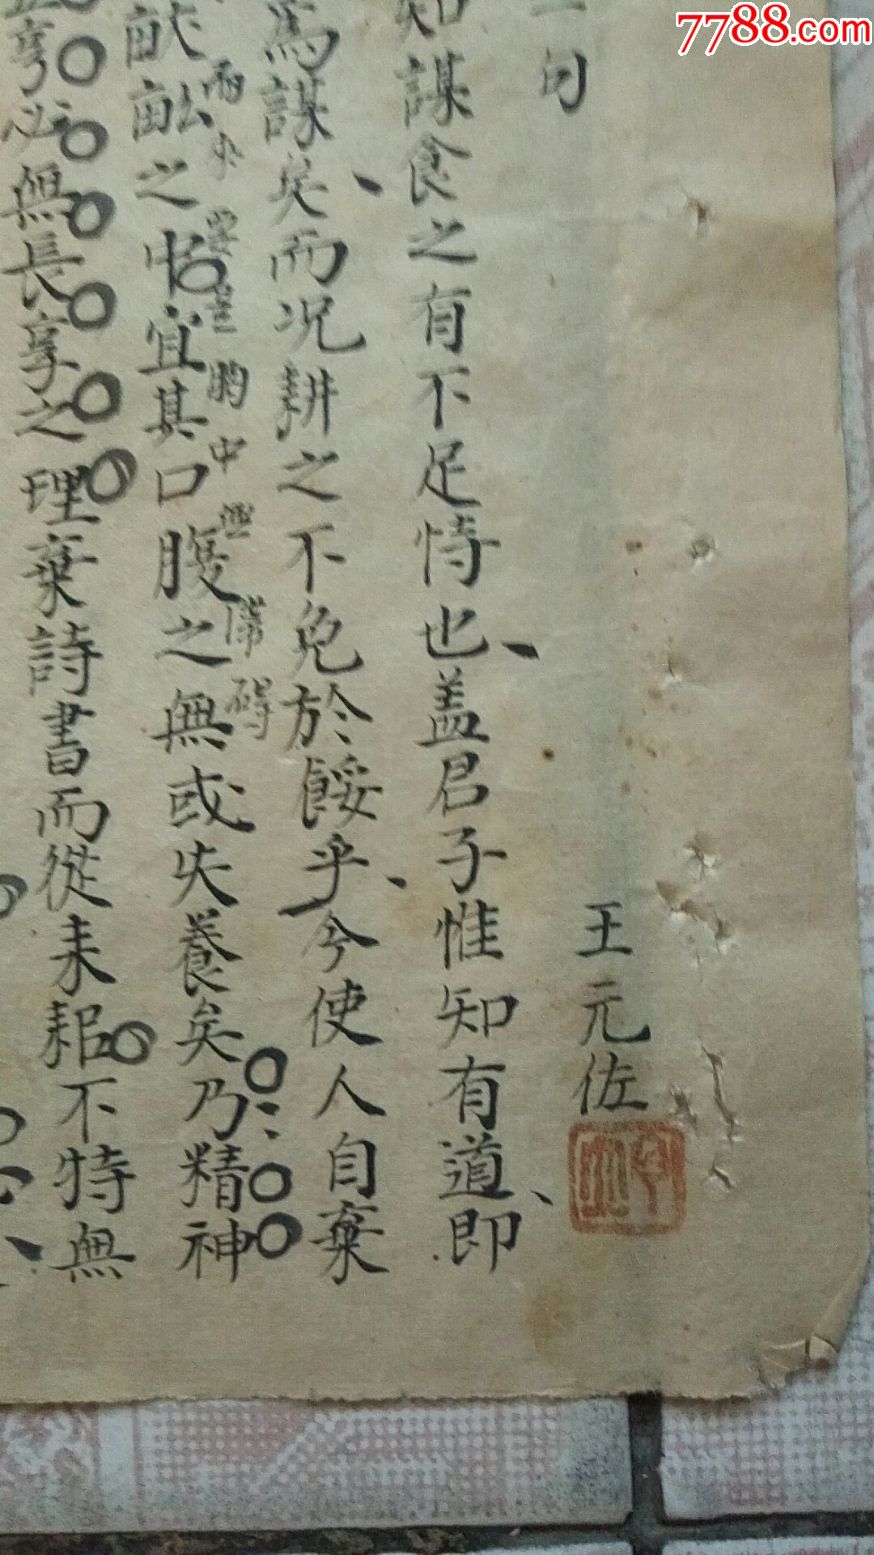 7788.com
一句
王元佐
知謀食之有不足恃也蓋君子惟知有道即
為謀矣而况耕之不免於餒乎今使人自棄
畎畝之中宜其口腹之無或失養矣乃精神
胸中無滯碍
享必無長享之理棄詩書而從耒耜不特無